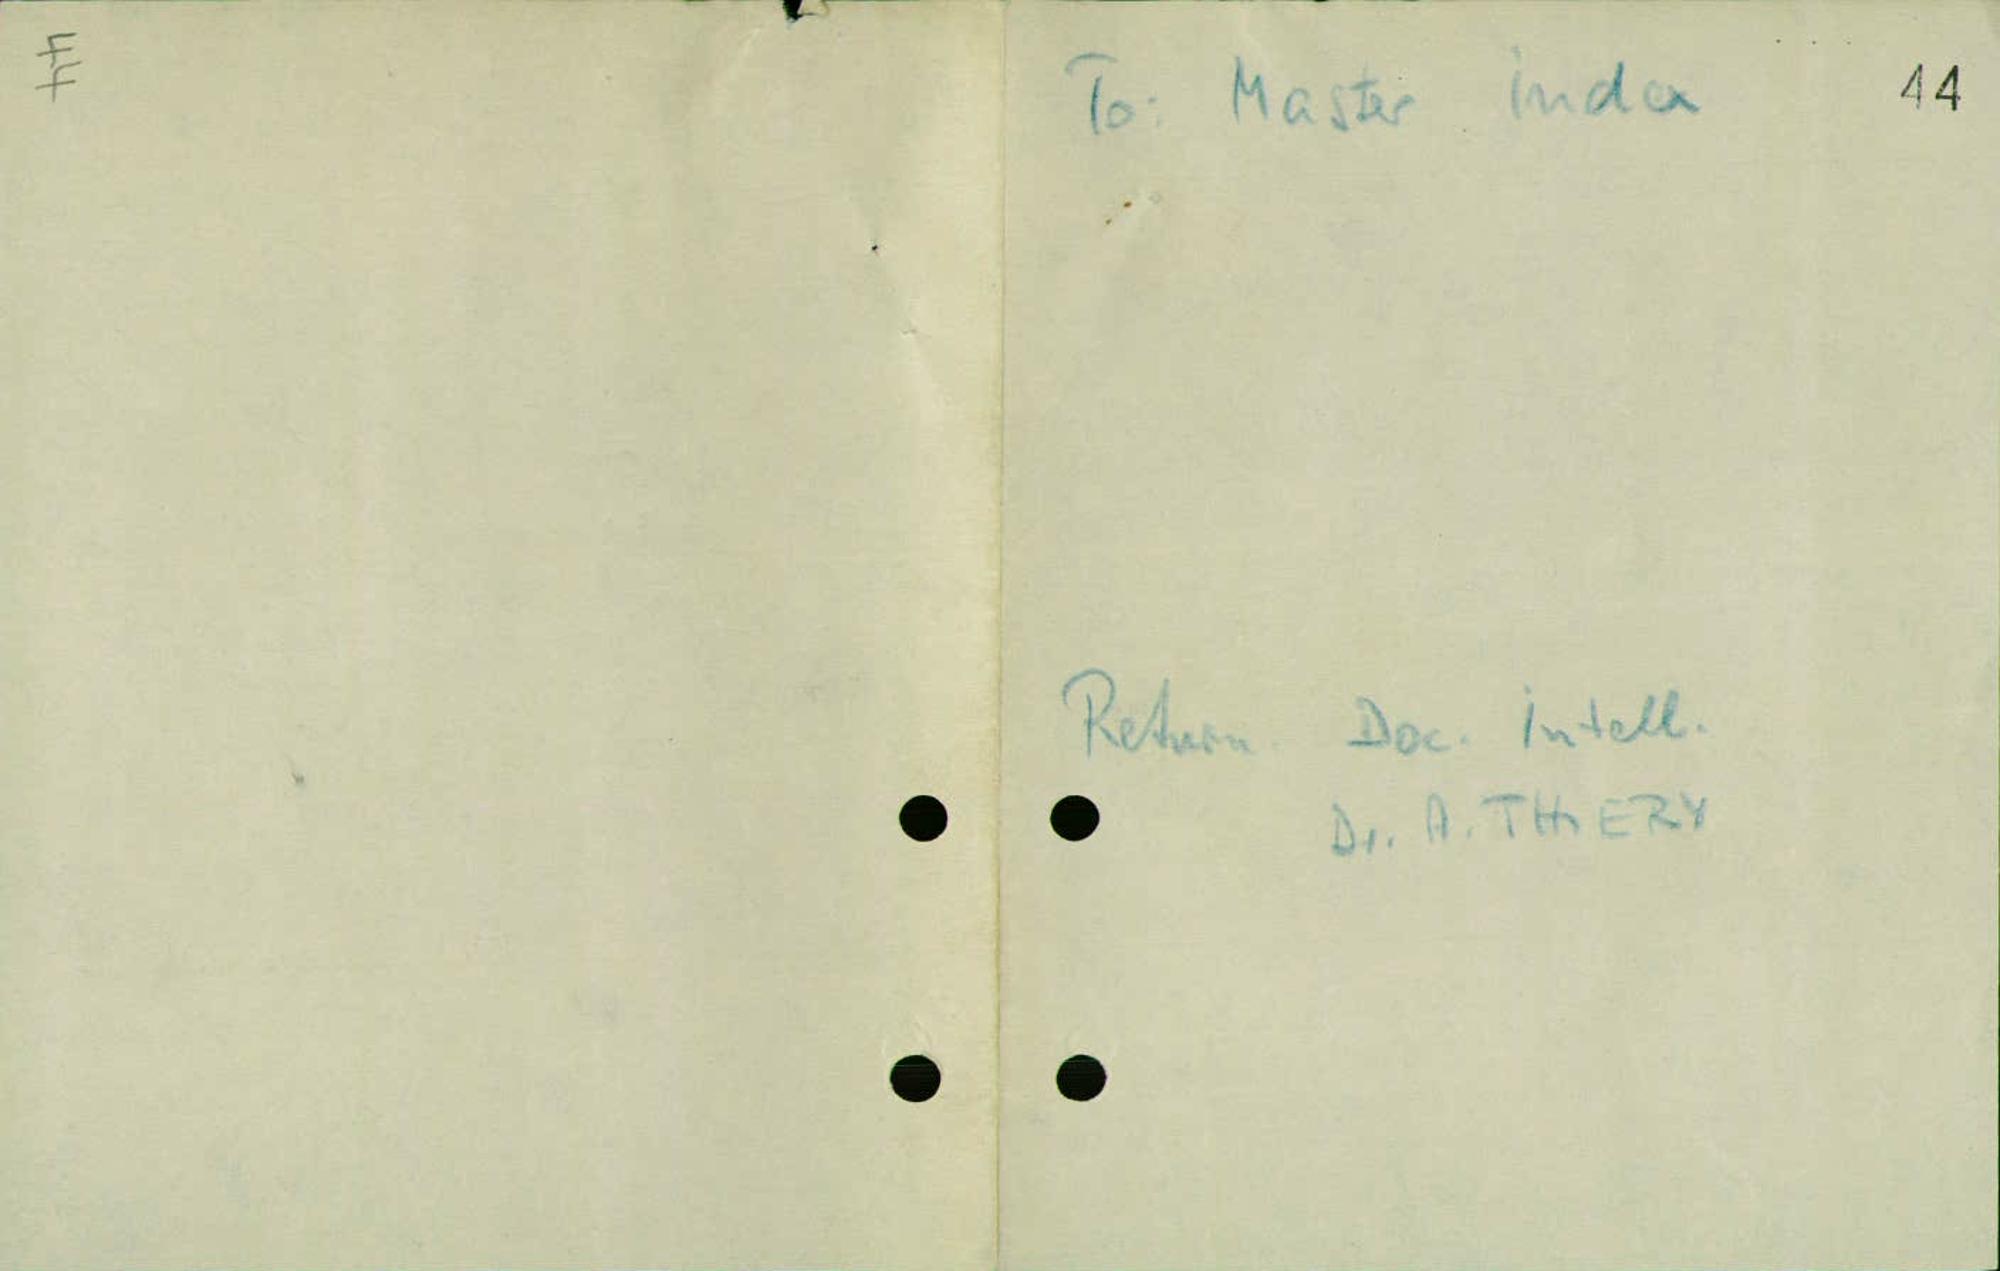 To: Master index
44
Return. Doc. intell.
Dr. A. THIERY